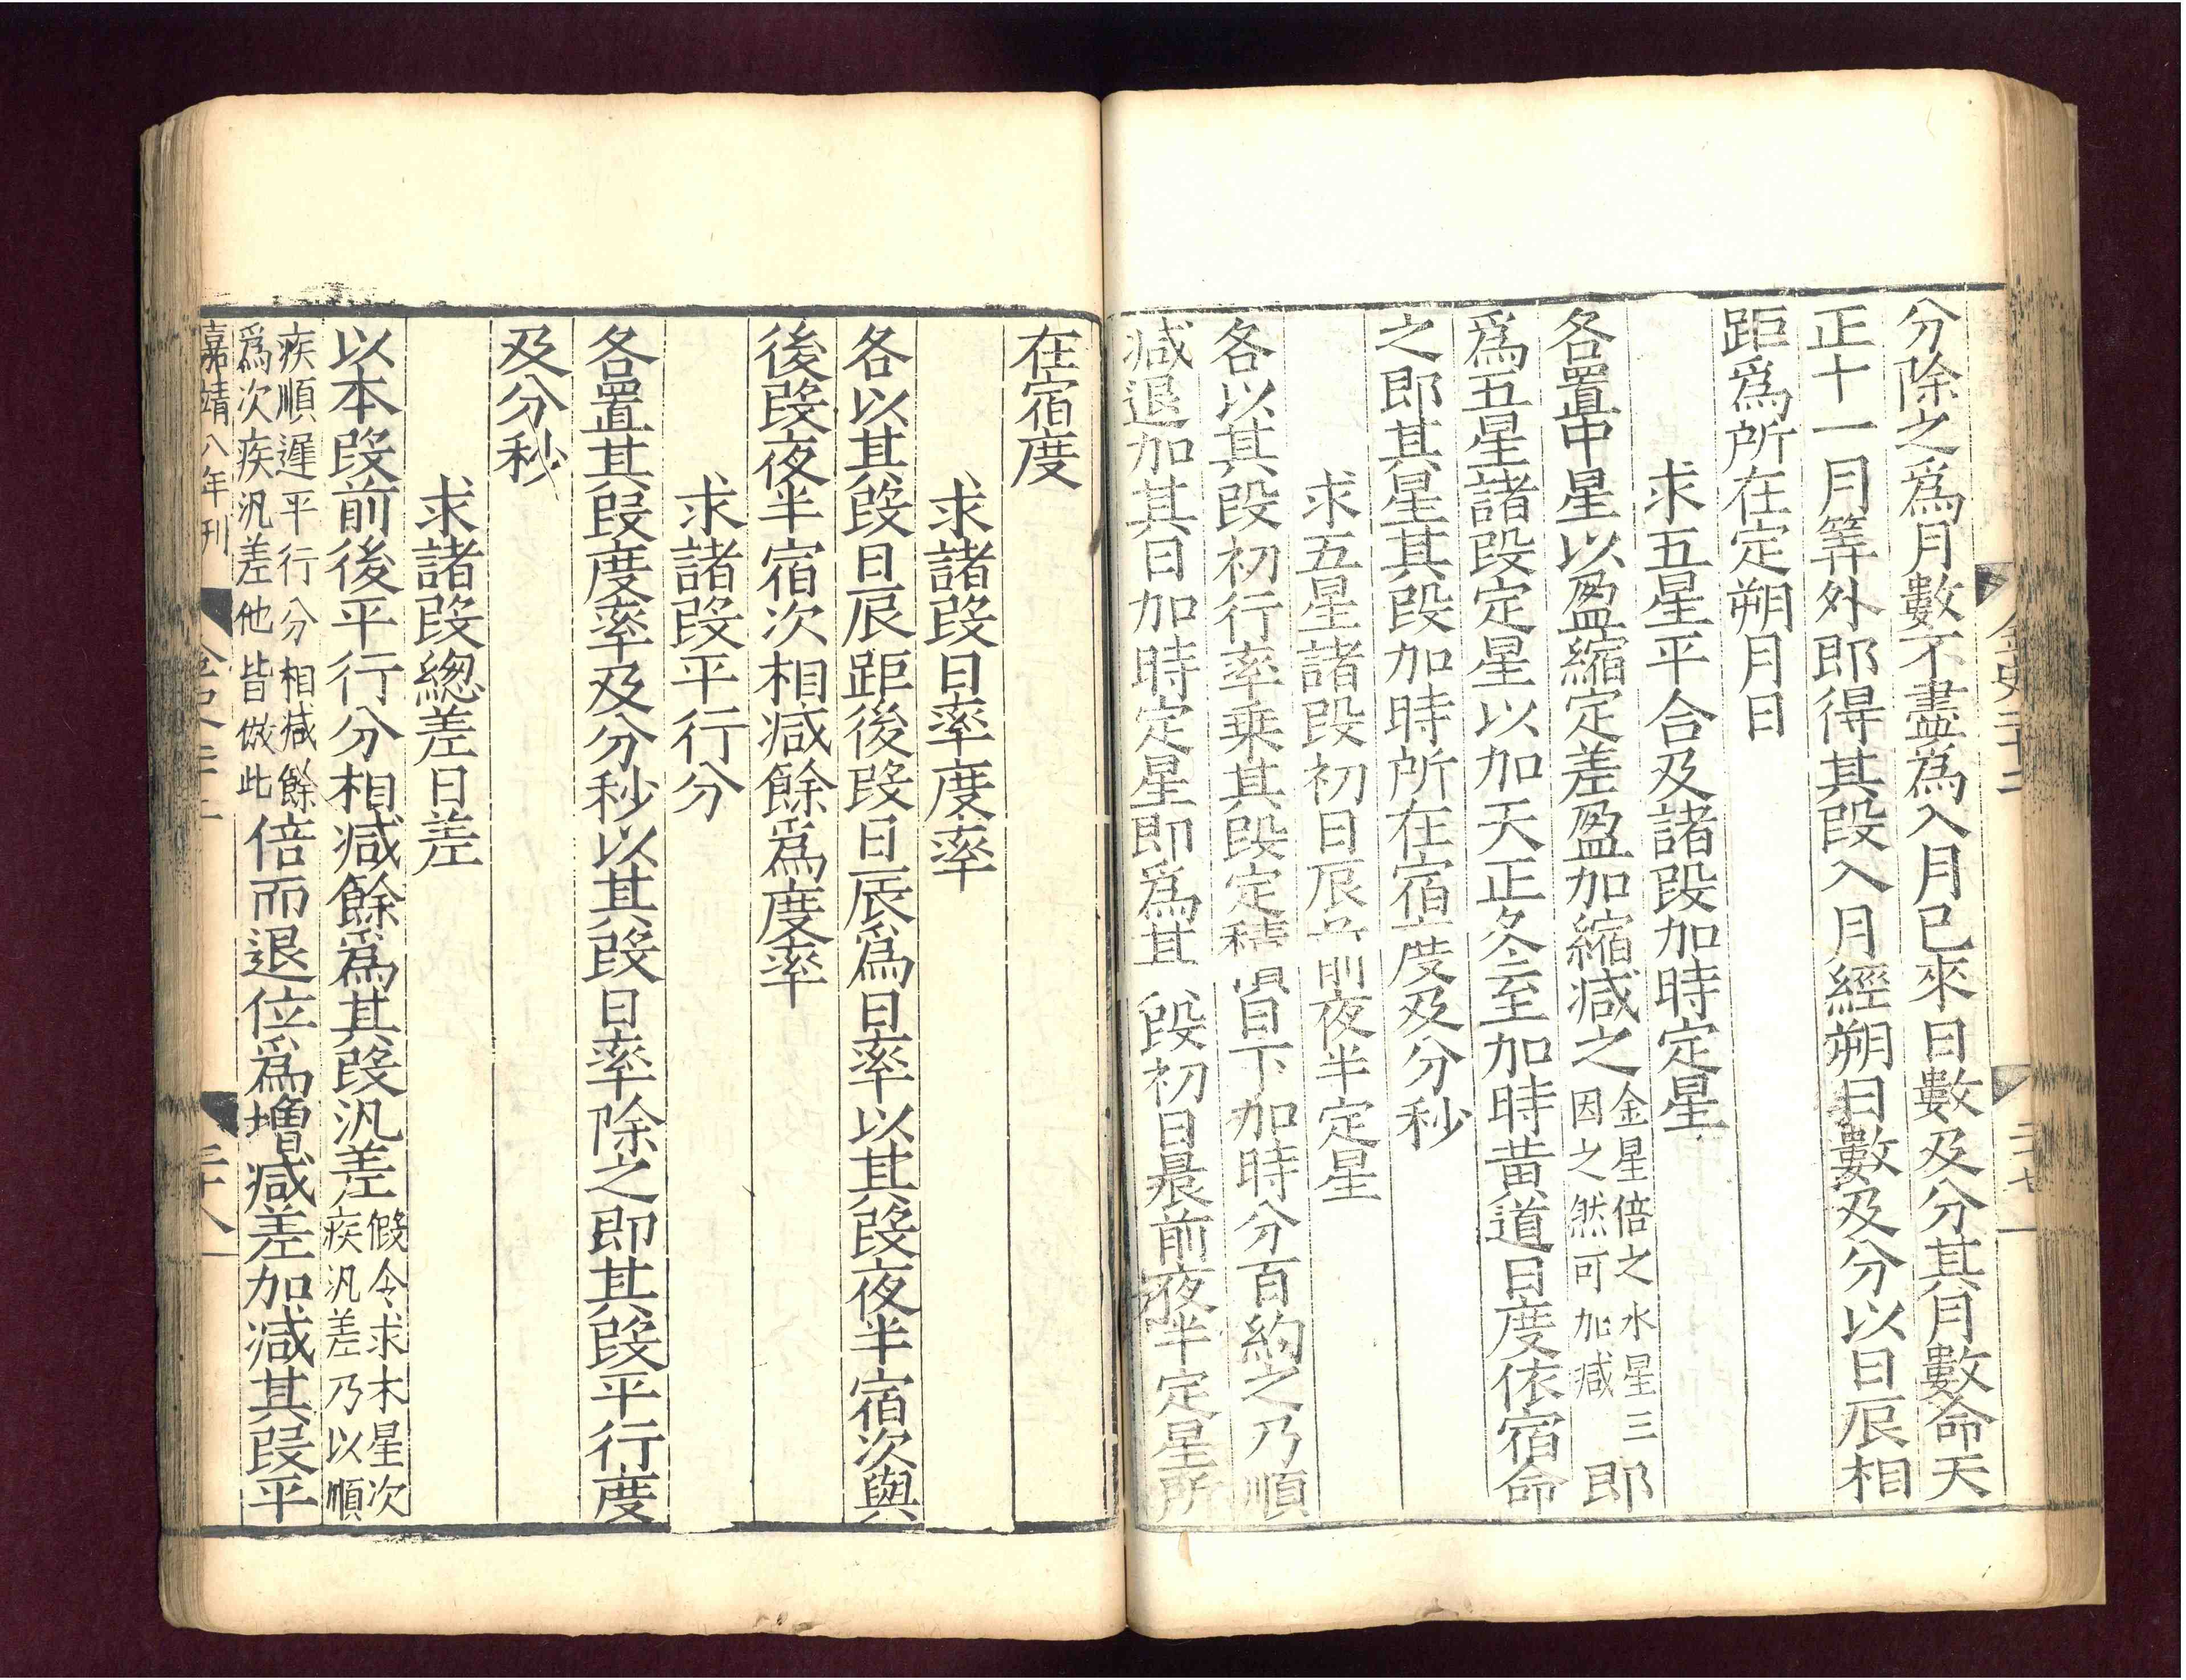 分除之爲月數不盡爲入月已來日數及分其月數命天
正十一月筭外即得其段入月經朔日數及分以日辰相
距爲所在定朔月日
求五星平合及諸段加時定星
各置中星以盈縮定差盈加縮減之金星倍之水星三因之然可加減即
爲五星諸段定星以加天正冬至加時黃道日度依宿命
之即其星其段加時所在宿度及分秒
求五星諸段初日辰前夜半定星
各以其段初行率乘其段定積日下加時分百約之乃順
減退加其日加時定星即爲其段初日晨前夜半定星所
金史二十二
二十七
在宿度
求諸段日率度率
各以其段日辰距後段日辰爲日率以其段夜半宿次與
後段夜半宿次相減餘爲度率
求諸段平行分
各置其段度率及分秒以其段日率除之即其段平行度
及分秒
求諸段緫差日差
以本段前後平行分相減餘爲其段汎差假令求木星次疾汎差乃以順
疾順遲平行分相減餘爲次疾汎差他皆倣此倍而退位爲增減差加減其段平
嘉靖八年刊
二十八